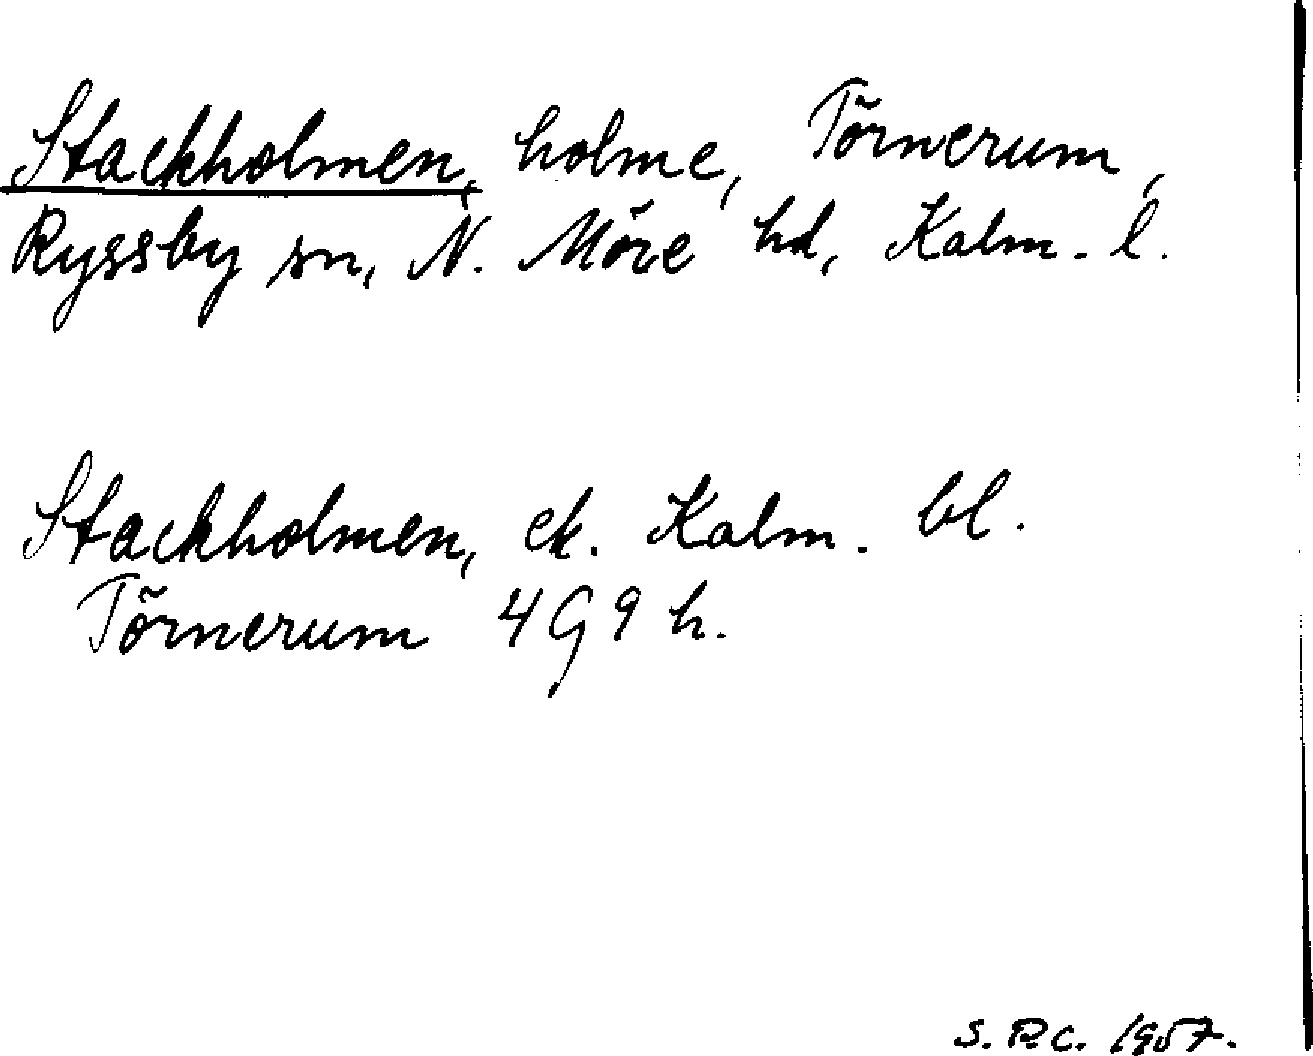 Stackholmen, holme, Törnerum,
Ryssby sn, N. Möre hd, Kalm. l.
Stackholmen, ek. Kalm. bl.
Törnerum 4G9h.
S.R.C. 1957.